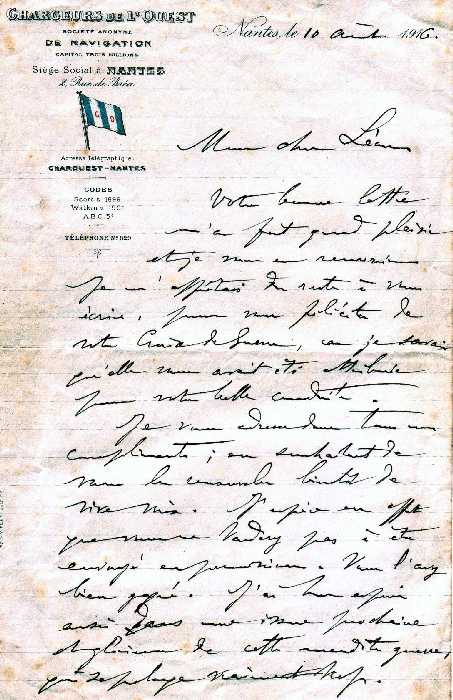 CHARGEURS DE L'OUEST
SOCIÉTÉ ANONYME
DE NAVIGATION
CAPITAL TROIS MILLIONS
Siège Social à NANTES
2, Rue de Bréa
C O
Adresse Télégraphique
CHAROUEST-NANTES
CODES
Scott's 1896
Watkins 1901
A.B.C. 5e
TÉLÉPHONE No 829
Nantes, le 10 Août 1916.
Mon cher Léon
Votre bonne lettre
m'a fait grand plaisir
et je vous en remercie
Je m'apprêtais du reste à vous
écrire, pour vous féliciter de
votre Croix de Guerre, car je savais
qu'elle vous avait été attribuée
pour votre belle conduite.
Je vous adresse donc tous mes
compliments ; en souhaitant de
vous les renouveler bientôt de
vive voix. J'espère en effet
que vous ne pas à être
envoyé en permission. Vous l'avez
bien gagné. J'ai bon espoir
aussi dans une issue prochaine
et glorieuse de cette maudite guerre,
qui se prolonge vraiment trop.